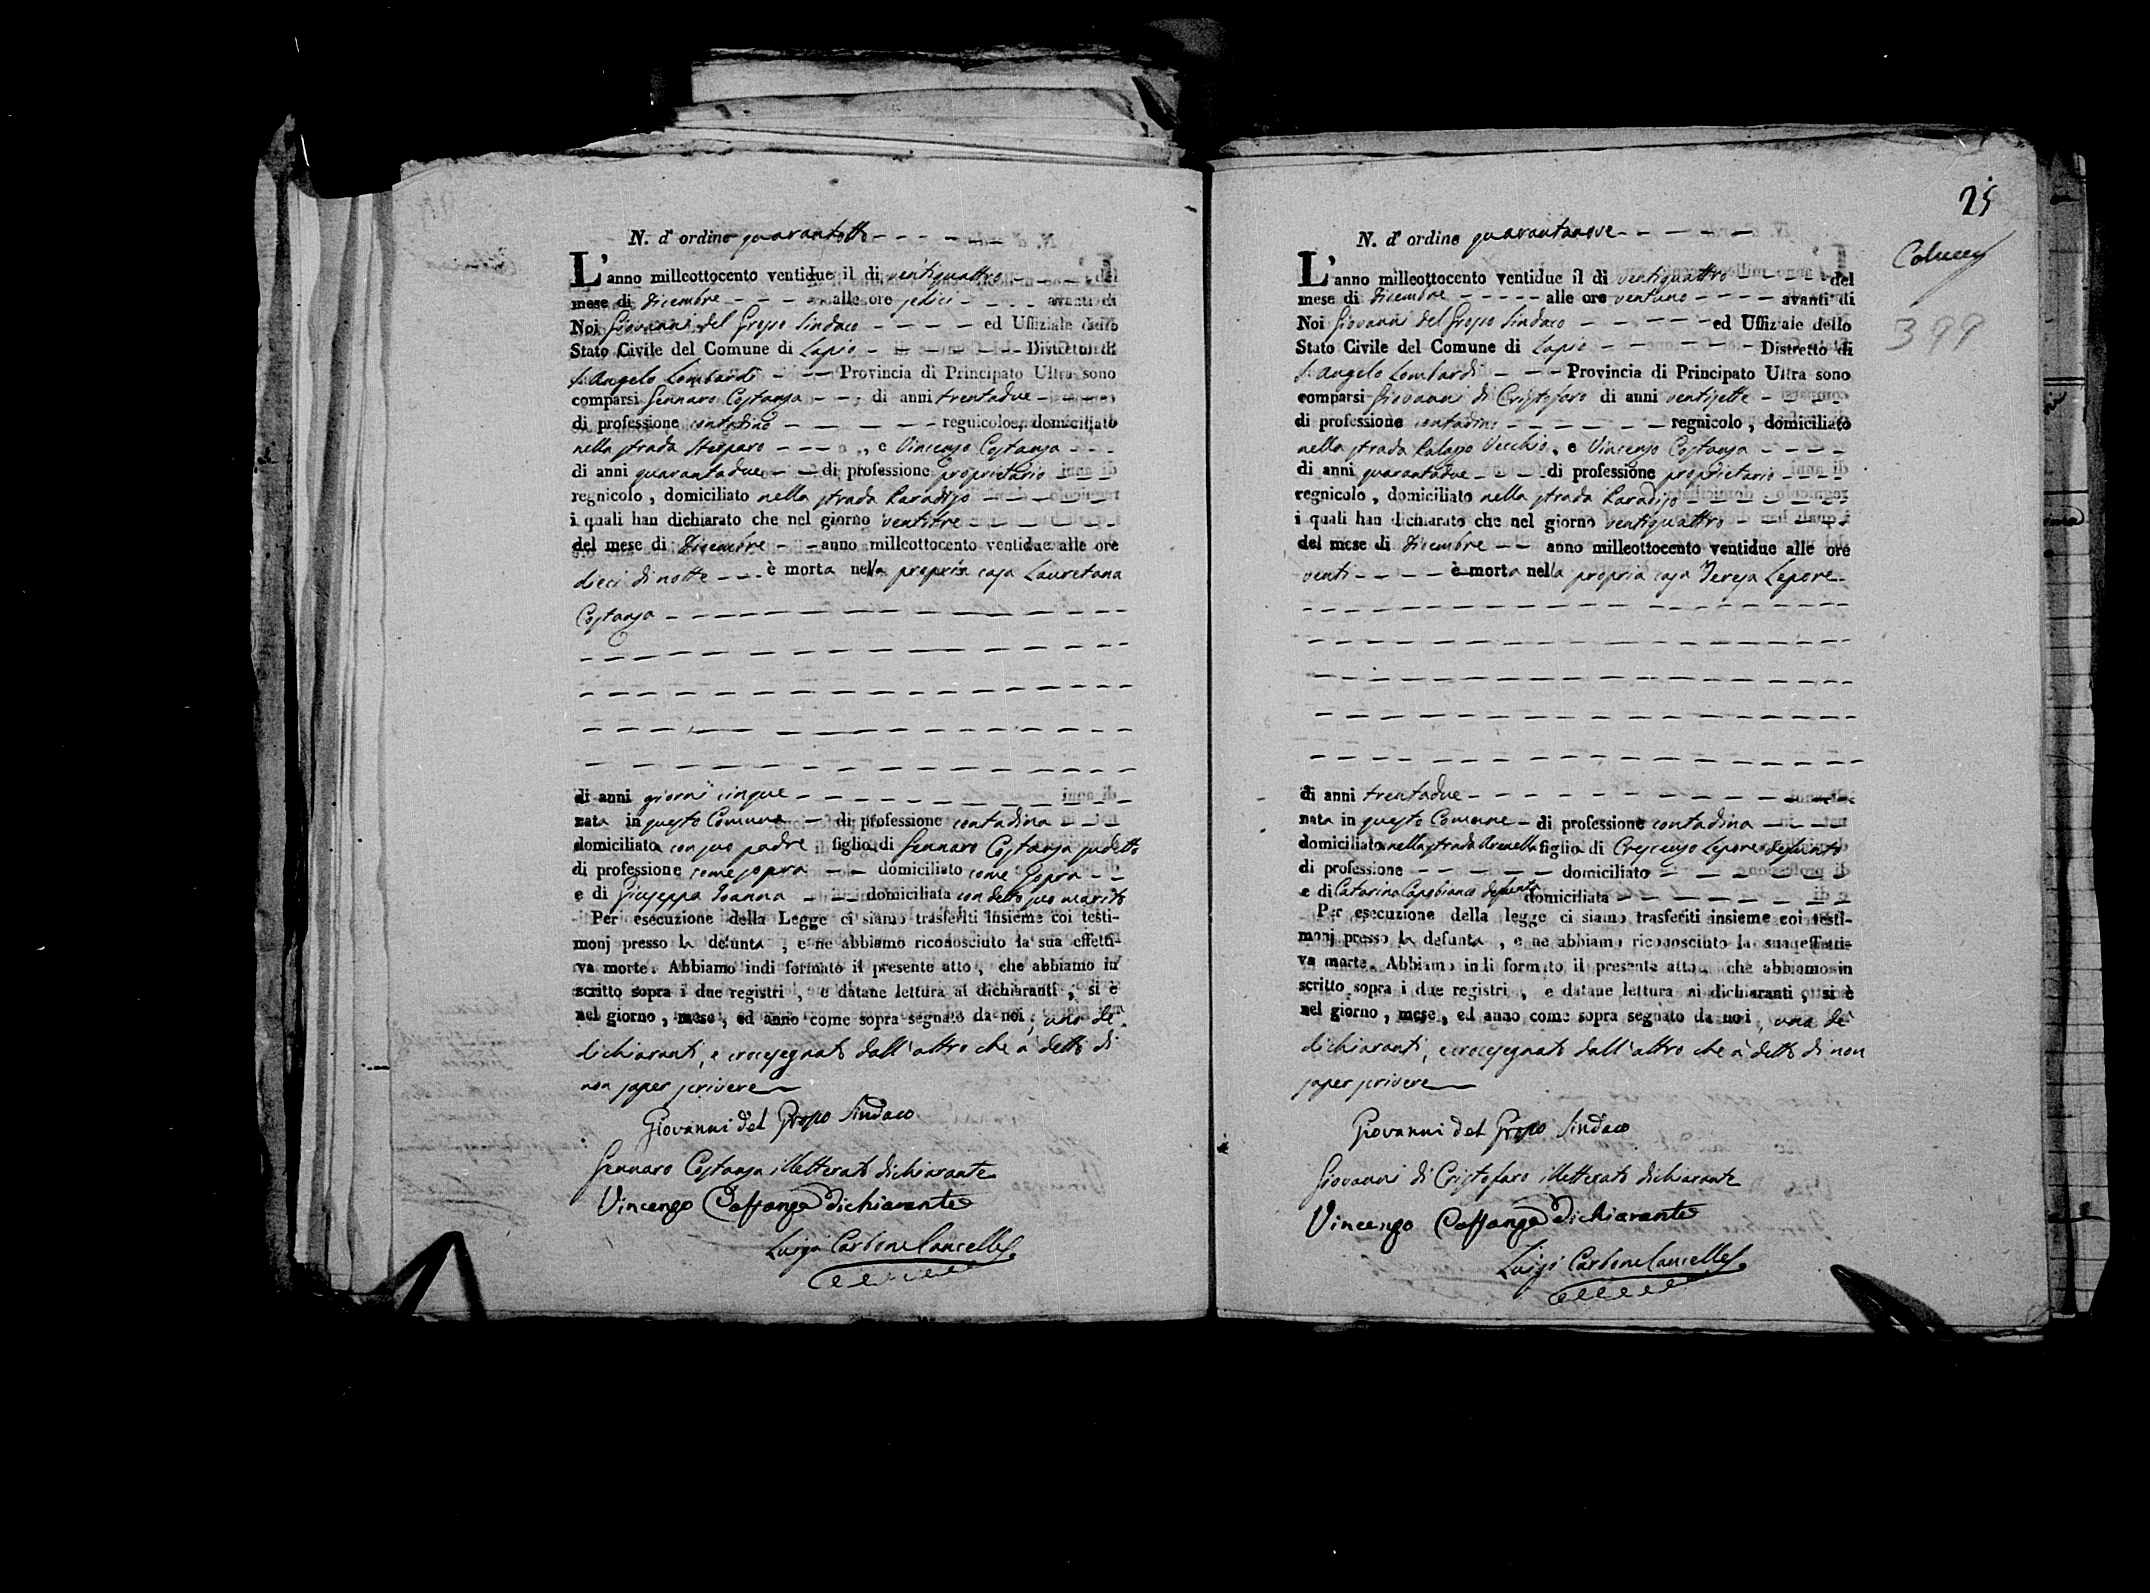 N. d' ordine quarantotto
L'anno milleottocento ventidue il di ventiquattro del
mese di Dicembre alle ore sedici avanti di
Noi Giovanni del Grosso Sindaco ed Uffiziale dello
Stato Civile del Comune di Lapio Distretto di
S. Angelo Lombardi Provincia di Principato Ultra sono
comparsi Gennaro Costanza di anni trentadue
di professione contadino regnicolo, domiciliato
nella strada , e Vincenzo Costanza
di anni quarantadue di professione proprietario
regnicolo, domiciliato nella strada Paradiso
i quali han dichiarato che nel giorno ventitre
del mese di Dicembre anno milleottocento ventidue alle ore
dieci di notte è morta nella propria casa Lauretana
Costanza
di anni giorni cinque
nata in questo Comune di professione contadina
domiciliata con suo padre figlia di Gennaro Costanza sudetto
di professione come sopra domiciliato come sopra
e di Giuseppa Ioanna domiciliata con detto suo marito
Per esecuzione della Legge ci siamo trasferiti insieme coi testi-
monj presso la defunta, e ne abbiamo riconosciuto la sua effetti-
va morte. Abbiamo indi formato il presente atto, che abbiamo in
scritto sopra i due registri, e datane lettura ai dichiaranti, si è
nel giorno, mese, ed anno come sopra segnato da noi, uno de'
dichiaranti, e crocesegnato dall'altro che à detto di
non saper scrivere
Giovanni del Grosso Sindaco
Gennaro Costanza illetterato dichiarante
Vincenzo Costanza dichiarante
Luigi Carbone Cancelle.
25
Colucci
399
N. d' ordine quarantanove
L'anno milleottocento ventidue il di ventiquattro del
mese di Dicembre alle ore ventuno avanti di
Noi Giovanni del Grosso Sindaco ed Uffiziale dello
Stato Civile del Comune di Lapio Distretto di
S. Angelo Lombardi Provincia di Principato Ultra sono
comparsi Giovanni di Cristofaro di anni ventisette
di professione contadino regnicolo, domiciliato
nella strada Palazzo Vecchio, e Vincenzo Costanza
di anni quarantadue di professione proprietario
regnicolo, domiciliato nella strada Paradiso
i quali han dichiarato che nel giorno ventiquattro
del mese di Dicembre anno milleottocento ventidue alle ore
venti è morta nella propria casa Teresa Lepore
di anni trentadue
nata in questo Comune di professione contadina
domiciliata nella strada Arenella figlia di Crescenzo Lepore defunto
di professione domiciliato
e di Catarina Capobianco defunta domiciliata
Per esecuzione della legge ci siamo trasferiti insieme coi testi-
monj presso la defunta, e ne abbiamo riconosciuto la sua effetti-
va morte. Abbiamo indi formato il presente atto, che abbiamo in
scritto sopra i due registri, e datane lettura ai dichiaranti, si è
nel giorno, mese, ed anno come sopra segnato da noi, uno de'
dichiaranti, e crocesegnato dall'altro che à detto di non
saper scrivere
Giovanni del Grosso Sindaco
Giovanni di Cristofaro illetterato dichiarante
Vincenzo Costanza Dichiarante
Luigi Carbone Cancelle.